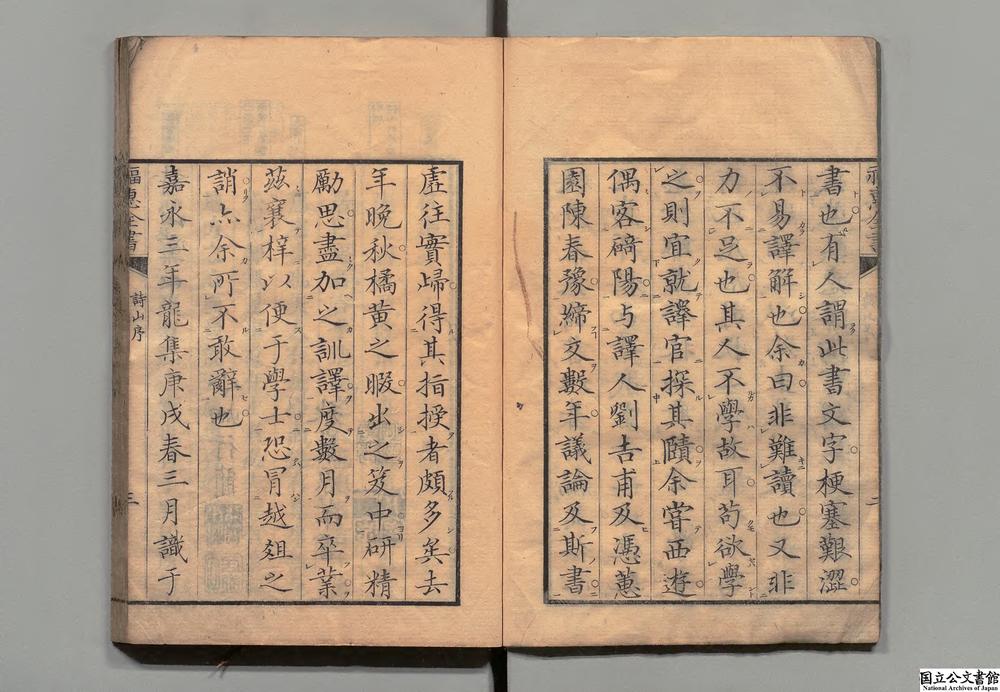 書也有人謂此書文字梗塞艱澀
不易譯解也余曰非難讀也又非
力不足也其人不學故耳苟欲學
之則宜就譯官探其賾余嘗西遊
偶客﨑陽与譯人劉吉甫及馮蕙
園陳春豫締文數年議論及斯書
虛往實歸得其指授者頗多矣去
年晚秋橘黃之暇出之笈中研精
勵思盡加之訓譯度數月而卒業
茲襄梓以便于學士恐冒越俎之
誚亦余所不敢辭也
嘉永三年龍集庚戌春三月識于
福惠全書
詩山序
三
二
国立公文書館
National Archives of Japan